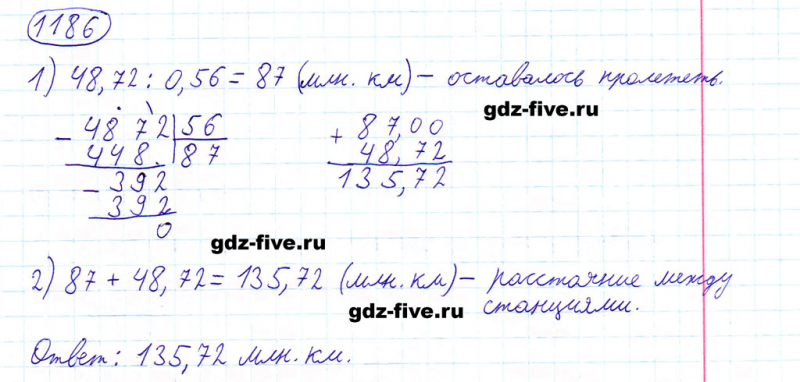 1186
1) 48,72 : 0,56 = 87 (млн. км) – оставалось пролететь.
gdz-five.ru
- 4872 | 56
448. | 87
- 392
392
0
+ 87,00
48,72
135,72
gdz-five.ru
2) 87 + 48,72 = 135,72 (млн. км) – расстояние между
станциями.
gdz-five.ru
Ответ: 135,72 млн. км.